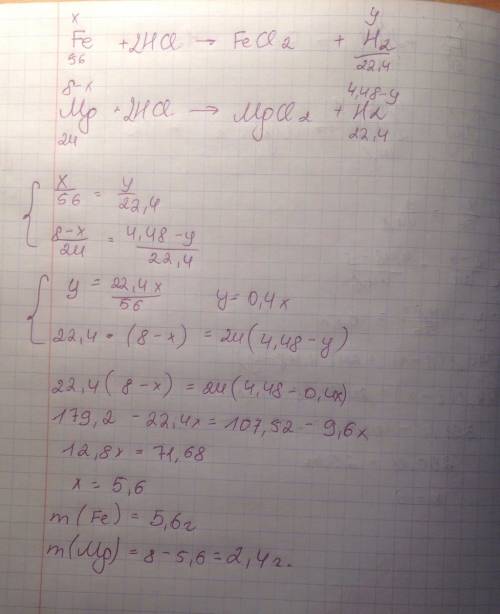 x y
Fe + 2HCl → FeCl2 + H2
56 22,4
8-x 4,48-y
Mg + 2HCl → MgCl2 + H2
24 22,4
x/56 = y/22,4
8-x/24 = 4,48-y/22,4
y = 22,4x/56 y = 0,4x
22,4 · (8-x) = 24(4,48-y)
22,4(8-x) = 24(4,48-0,4x)
179,2 - 22,4x = 107,52 - 9,6x
12,8x = 71,68
x = 5,6
m(Fe) = 5,6г
m(Mg) = 8-5,6 = 2,4г.